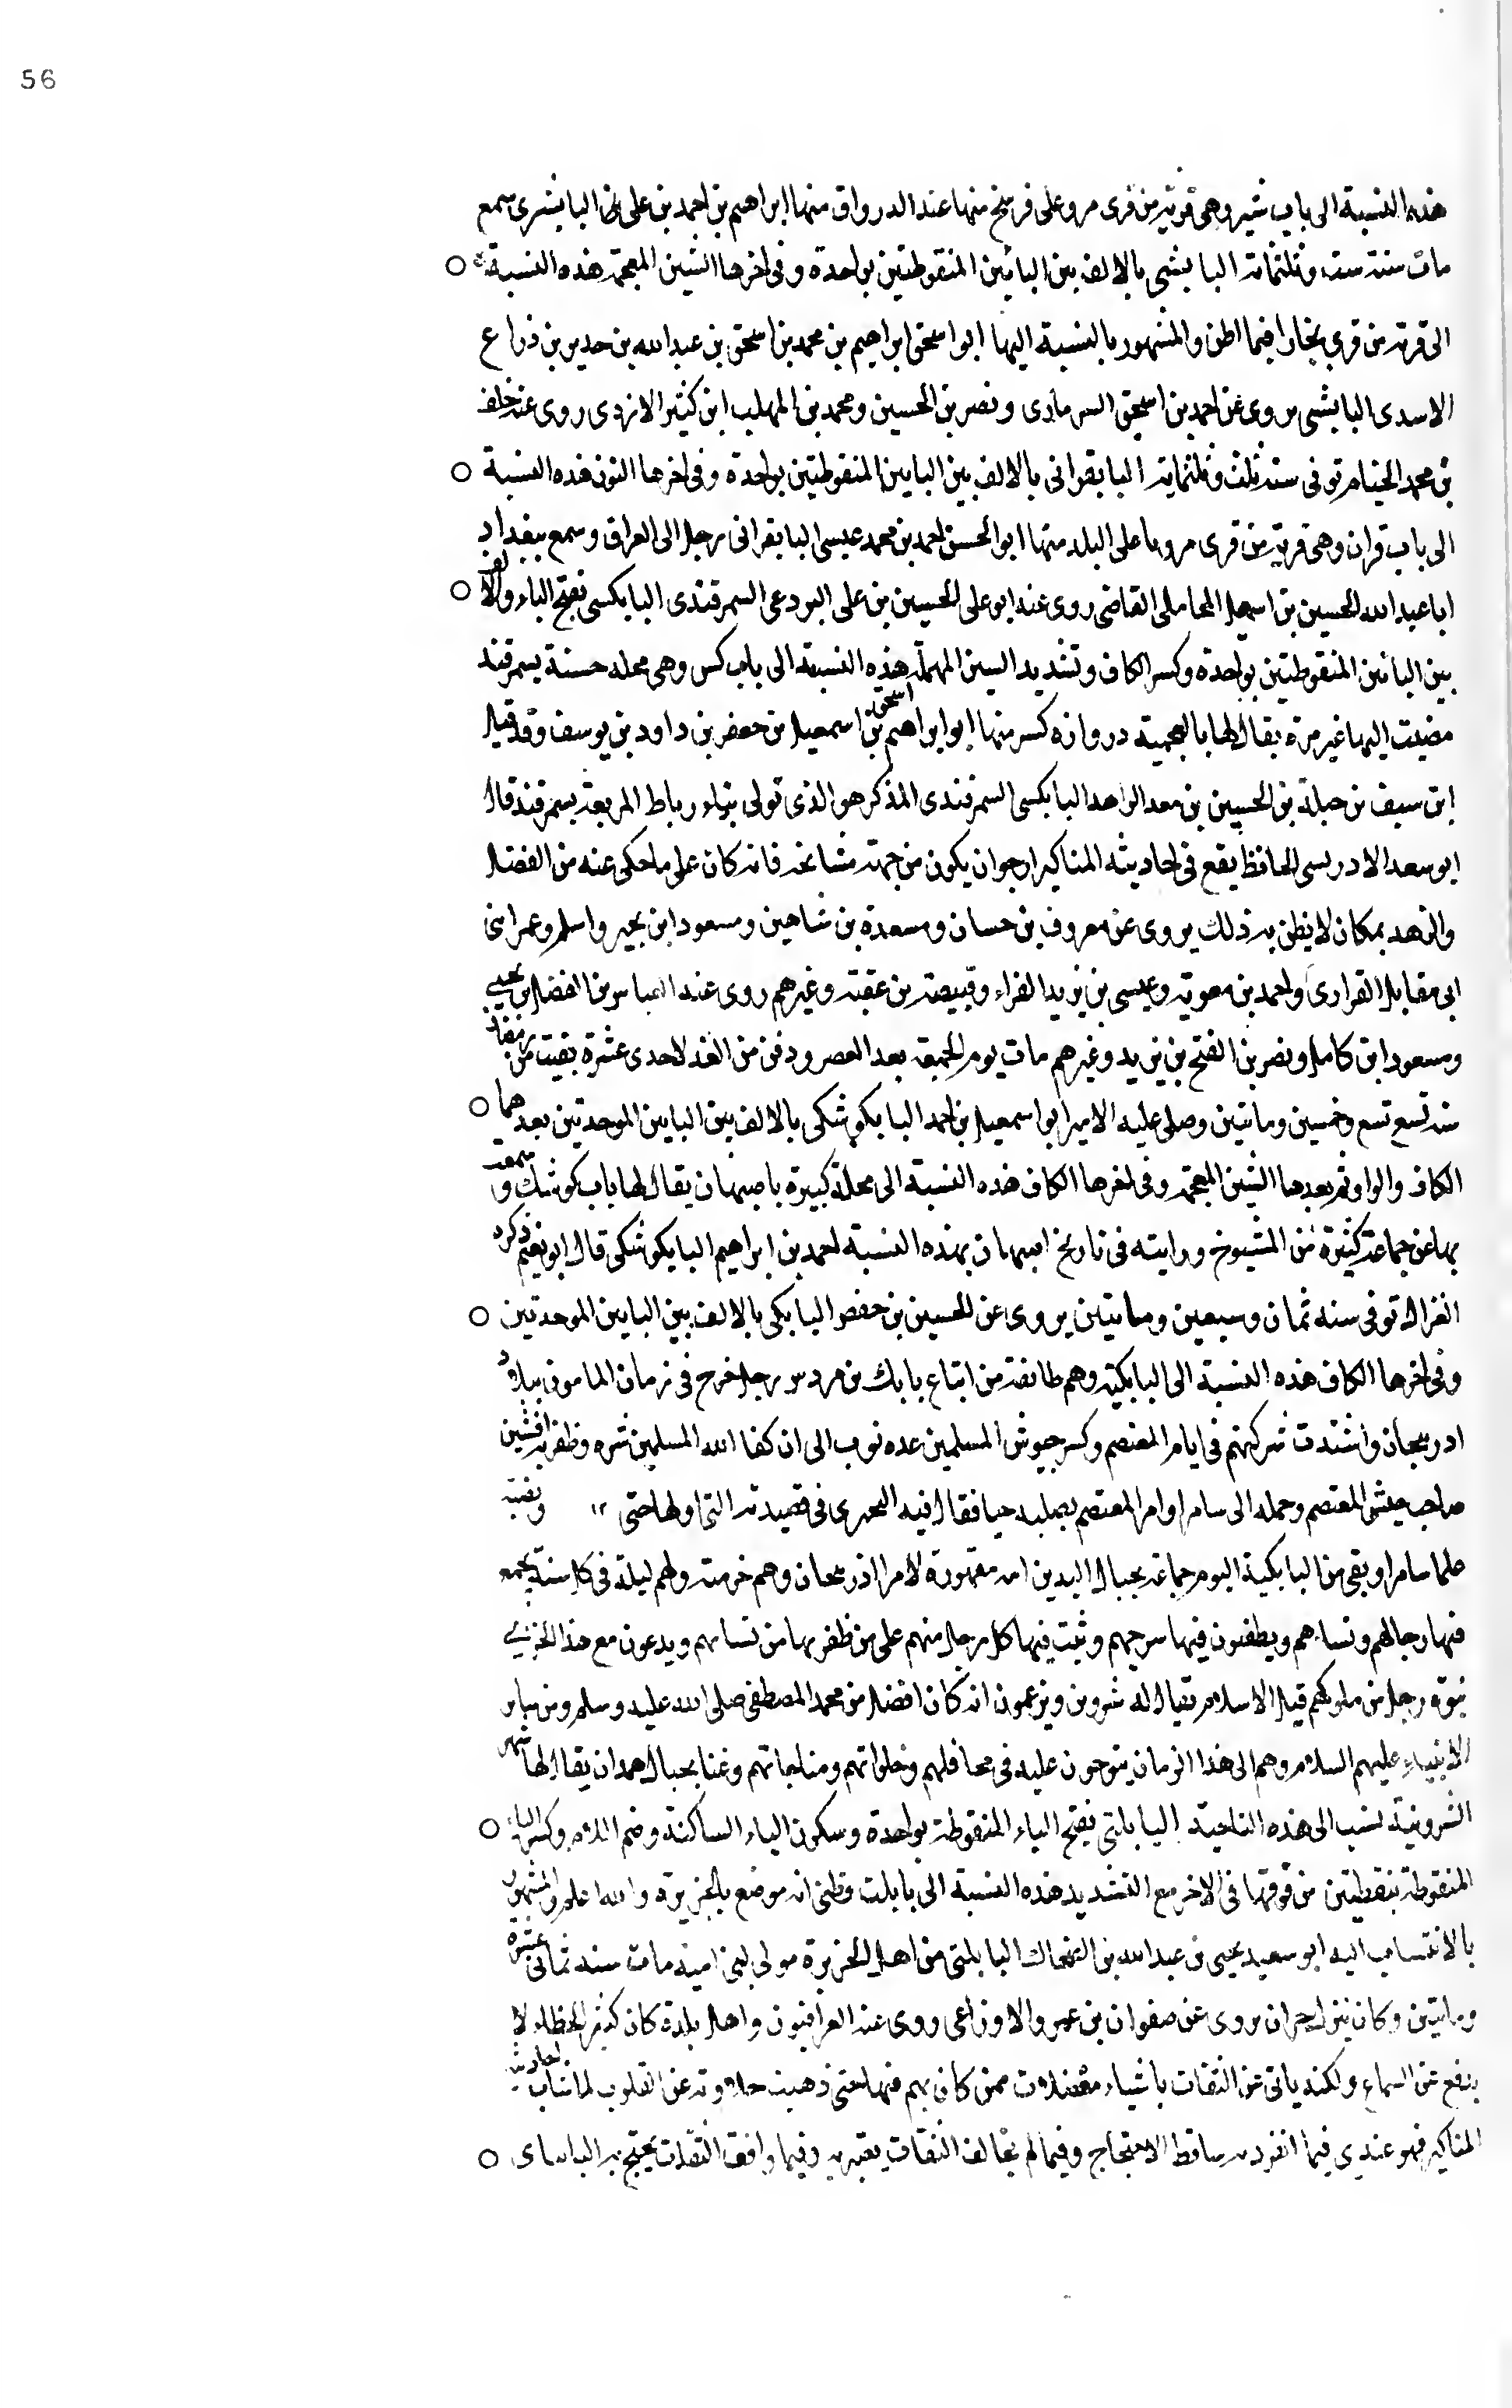 56
هذه النسبة الى باب شير وهى قرية من قرى مرو على فرسخ منها عند الدرواق منها ابراهيم بن احمد بن على البابشيرى سمع
مات سنة ست وثلثمائة البابشى بالالف بين البائين المنقوطتين بواحدة وفى اخرها الشين المعجمة هذه النسبة ○
الى قرية من قرى بخارا فيما اظن والمشهور بالنسبة اليها ابو اسحق ابراهيم بن محمد بن اسحق بن عبد الله بن حدير بن ذراع
الاسدى البابشى يروى عن احمد بن اسحق السرمارى ونصر بن الحسين ومحمد بن المهلب ابن كثير الازدى روى عنه خلف
بن محمد الخيام توفى سنة ثلث وثلثماية البابقرانى بالالف بين البايين المنقوطتين بواحدة وفى اخرها النون هذه النسبة ○
الى باب قران وهى قرية من قرى مرو باعلى البلد منها ابو الحسن احمد بن محمد عيسى البابقرانى رحل الى العراق وسمع ببغداد
ابا عبد الله الحسين بن اسمعيل المحاملى القاضى روى عنه ابو على الحسين بن على البردعى السمرقندى البابكسى بفتح الباء والالف ○
بين البائين المنقوطتين بواحدة وكسر الكاف وتشديد السين المهملة هذه النسبة الى باب كس وهى محله حسنة بسمرقند
مضيت اليها غير مرة يقال لها بالعجمية دروازه كس منها ابو ابراهيم اسحق بن اسمعيل بن جعفر بن داود بن يوسف وقد قيل
ابن سيف بن جبلة بن الحسين بن معد الزاهد البابكسى السمرقندى المذكر هو الذى تولى بناء رباط المربعة بسمرقند قال
ابو سعد الادريسى الحافظ يقع فى احاديثه المناكير ارجو ان يكون من جهة مشائخه فانه كان على ما حكى عنه من الفضل
والزهد بمكان لا يظن به ذلك يروى عن معروف بن حسان ومسعدة بن شاهين ومسعود ابن بحير واسلم وعمر ابنى
ابى مقابل الفزارى واحمد بن معوية وعيسى بن يزيد الفراء وقبيصة بن عقبة وغيرهم روى عنه العباس بن الفضل بن يحيى
ومسعود ابن كامل ونصر بن الفتح بن يزيد وغيرهم مات يوم الجمعة بعد العصر ودفن من الغد لاحدى عشرة بقيت من رمضان
سنة تسع تسع وخمسين ومائتين وصلى عليه الامير ابو اسمعيل بن احمد البابكوشكى بالالف بين البايين الموحدتين بعدهما ○
الكاف والواو ثم بعدها الشين المعجمة وفى اخرها الكاف هذه النسبة الى محلة كبيرة باصبهان يقال لها باب كوشك وسمعت
بها عن جماعة كثيرة من الشيوخ ورايته فى تاريخ اصبهان بهذه النسبة احمد بن ابراهيم البابكوشكى قال ابو نعيم ذكره
الغزال توفى سنه ثمان وسبعين ومائتين يروى عن الحسين بن حفص البابكى بالالف بين البايين الموحدتين ○
وفى اخرها الكاف هذه النسبة الى البابكية وهم طائفة من اتباع بابك بن مردس رجل خرج فى زمان المامون ببلاد
ادربيجان واشتدت شركتهم فى ايام المعتصم وكسر جيوش المسلمين عده نوب الى ان كفا الله المسلمين شره وظفر به افشين
صاحب جيش المعتصم وحمله الى سامرا وامر المعتصم بصلبه حيا فقال فيه البحترى فى قصيدته التى اولها حتى ١٢ ونصبته
علما سامرا وبقى من البابكية اليوم جماعة بجبال البدين امه مقهورة لامرا اذربيجان وهم خرمية ولهم ليلة فى كل سنة يجمع
فيها رجالهم ونساءهم ويطفئون فيها سرجهم وثبت فيها كل رجل منهم على من ظفر بها من نسائهم ويدعون مع هذا الخزى
نبوة رجل من ملوكهم قبل الاسلام يقال له شروين ويزعمون انه كان افضل من محمد المصطفى صلى الله عليه وسلم ومن سائر
الانبياء عليهم السلام وهم الى هذا الزمان ينوحون عليه فى محافلهم وخلواتهم ومناجاتهم وغنا بجبال همدان يقال لها شهر
الشروينية نسب الى هذه الناحية البابلتى بفتح الباء المنقوطة بواحدة وسكون الباء الساكنة وضم اللام وكسر التاء ○
المنقوطة بنقطتين من فوقها فى الاخر مع التشديد هذه النسبة الى بابلت وظنى انه موضع بالجزيرة والله اعلم والمشهور
بالانتساب اليه ابو سعيد يحيى بن عبد الله بن الضحاك البابلتى من اهل الجزيرة مولى لبنى امية مات سنه ثمانى عشرة
ومائتين وكان ينزل حران يروى عن صفوان بن عمرو والاوزاعى روى عنه العراقيون واهل بلده كان كثير الخطاء لا
يدفع عن السماع ولكنه ياتى عن الثقات باشياء معضلات ممن كان يهم فيها حتى ذهبت حلاوته عن القلوب لما شاب احاديثه
المناكير فهو عندى فيما انفرد به ساقط الاحتجاج وفيما لم يخالف الثقات يعتبر به وفيما وافق الثقات يحتج به ○